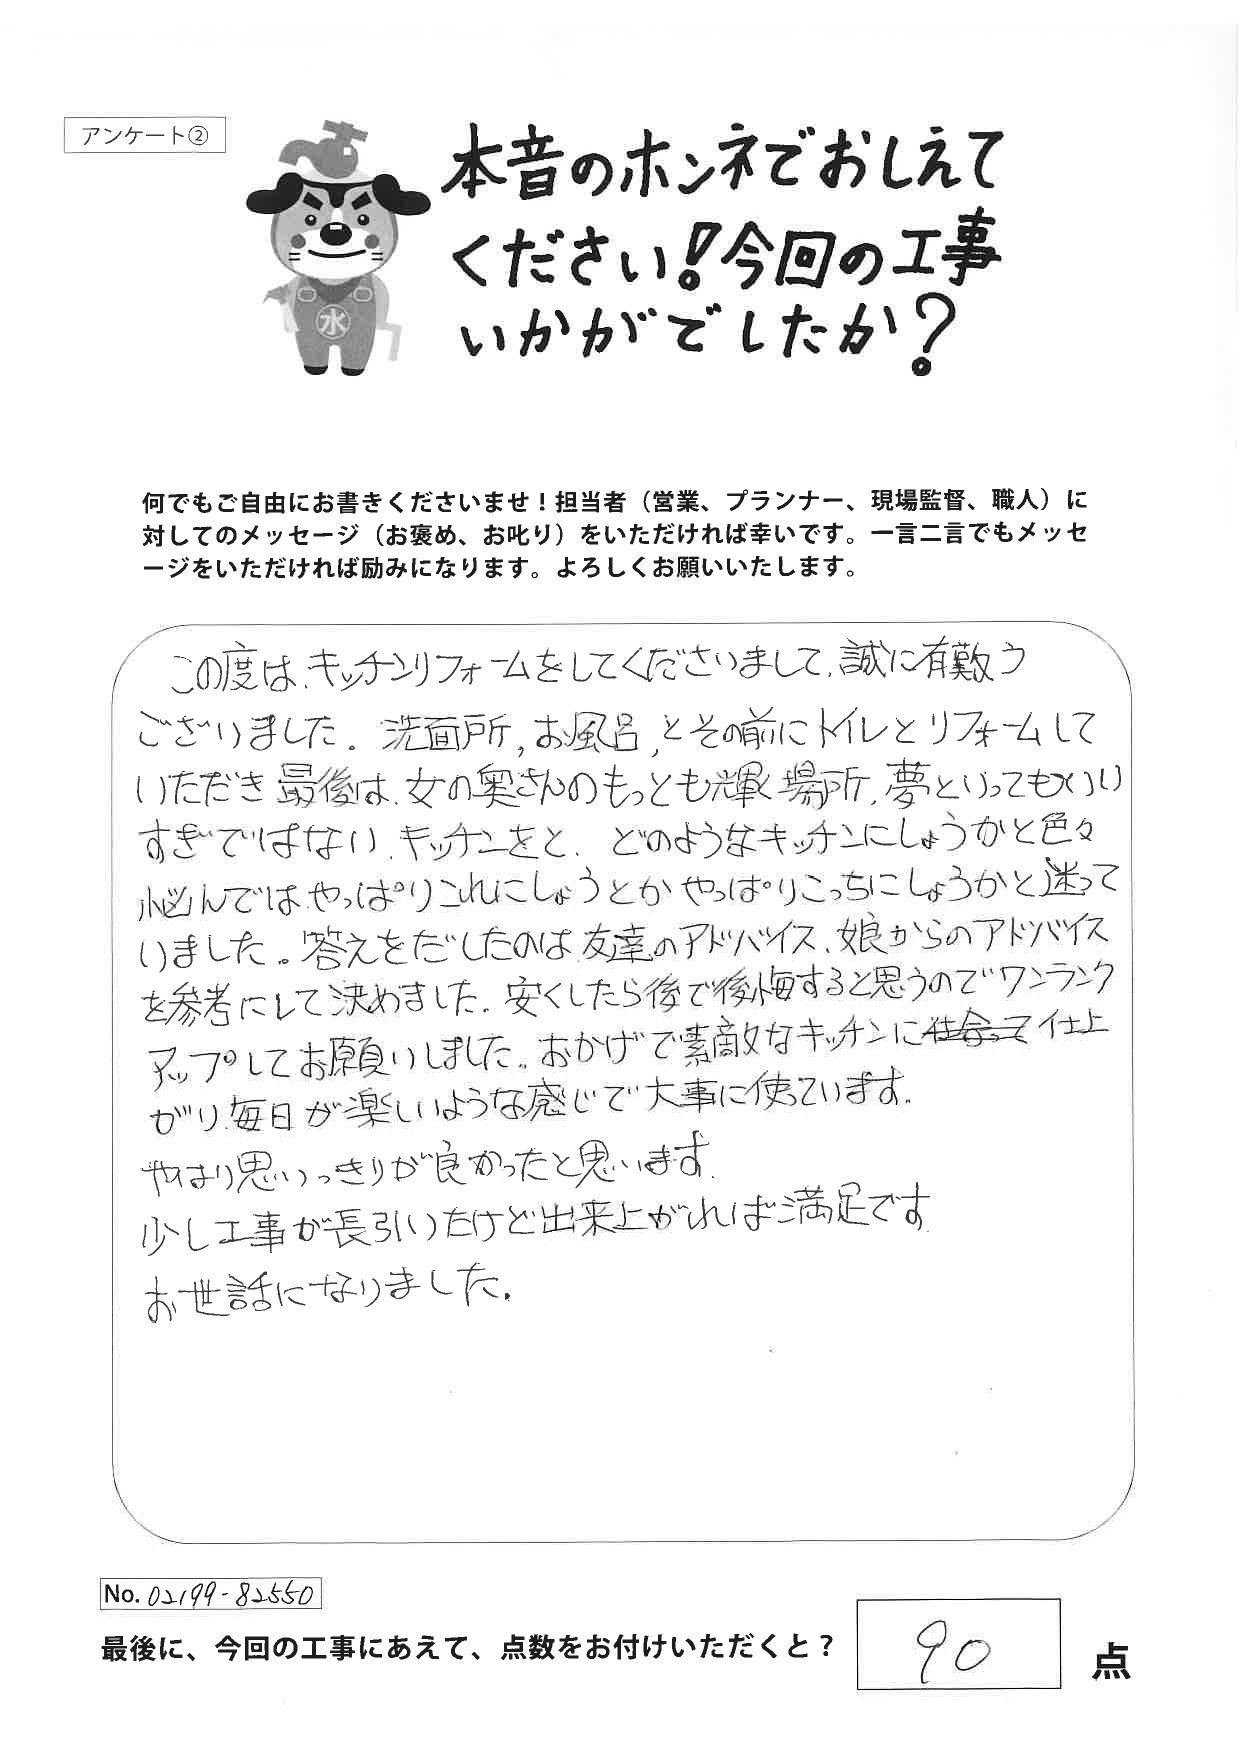 アンケート②
本音のホンネでおしえて
ください!今回の工事
いかがでしたか?
水
何でもご自由にお書きくださいませ!担当者(営業、プランナー、現場監督、職人)に
対してのメッセージ(お褒め、お叱り)をいただければ幸いです。一言二言でもメッセ
ージをいただければ励みになります。よろしくお願いいたします。
この度は、キッチンリフォームをしてくださいまして、誠に有難う
ございました。洗面所,お風呂,とその前にトイレとリフォームして
いただき最後は、女の奥さんのもっとも輝く場所、夢といってもいい
すぎではない、キッチンをと、どのようなキッチンにしようかと色々
悩んではやっぱりこれにしようとかやっぱりこっちにしようかと迷って
いました。答えをだしたのは友達のアドバイス、娘からのアドバイス
を参考にして決めました。安くしたら後で後悔すると思うのでワンランク
アップしてお願いしました。おかげで素敵なキッチンに仕上
がり、毎日が楽しいような感じで大事に使っています。
やはり思いっきりが良かったと思います。
少し工事が長引いたけど出来上がれば満足です
お世話になりました。
No. 02199-82550
最後に、今回の工事にあえて、点数をお付けいただくと? 90 点